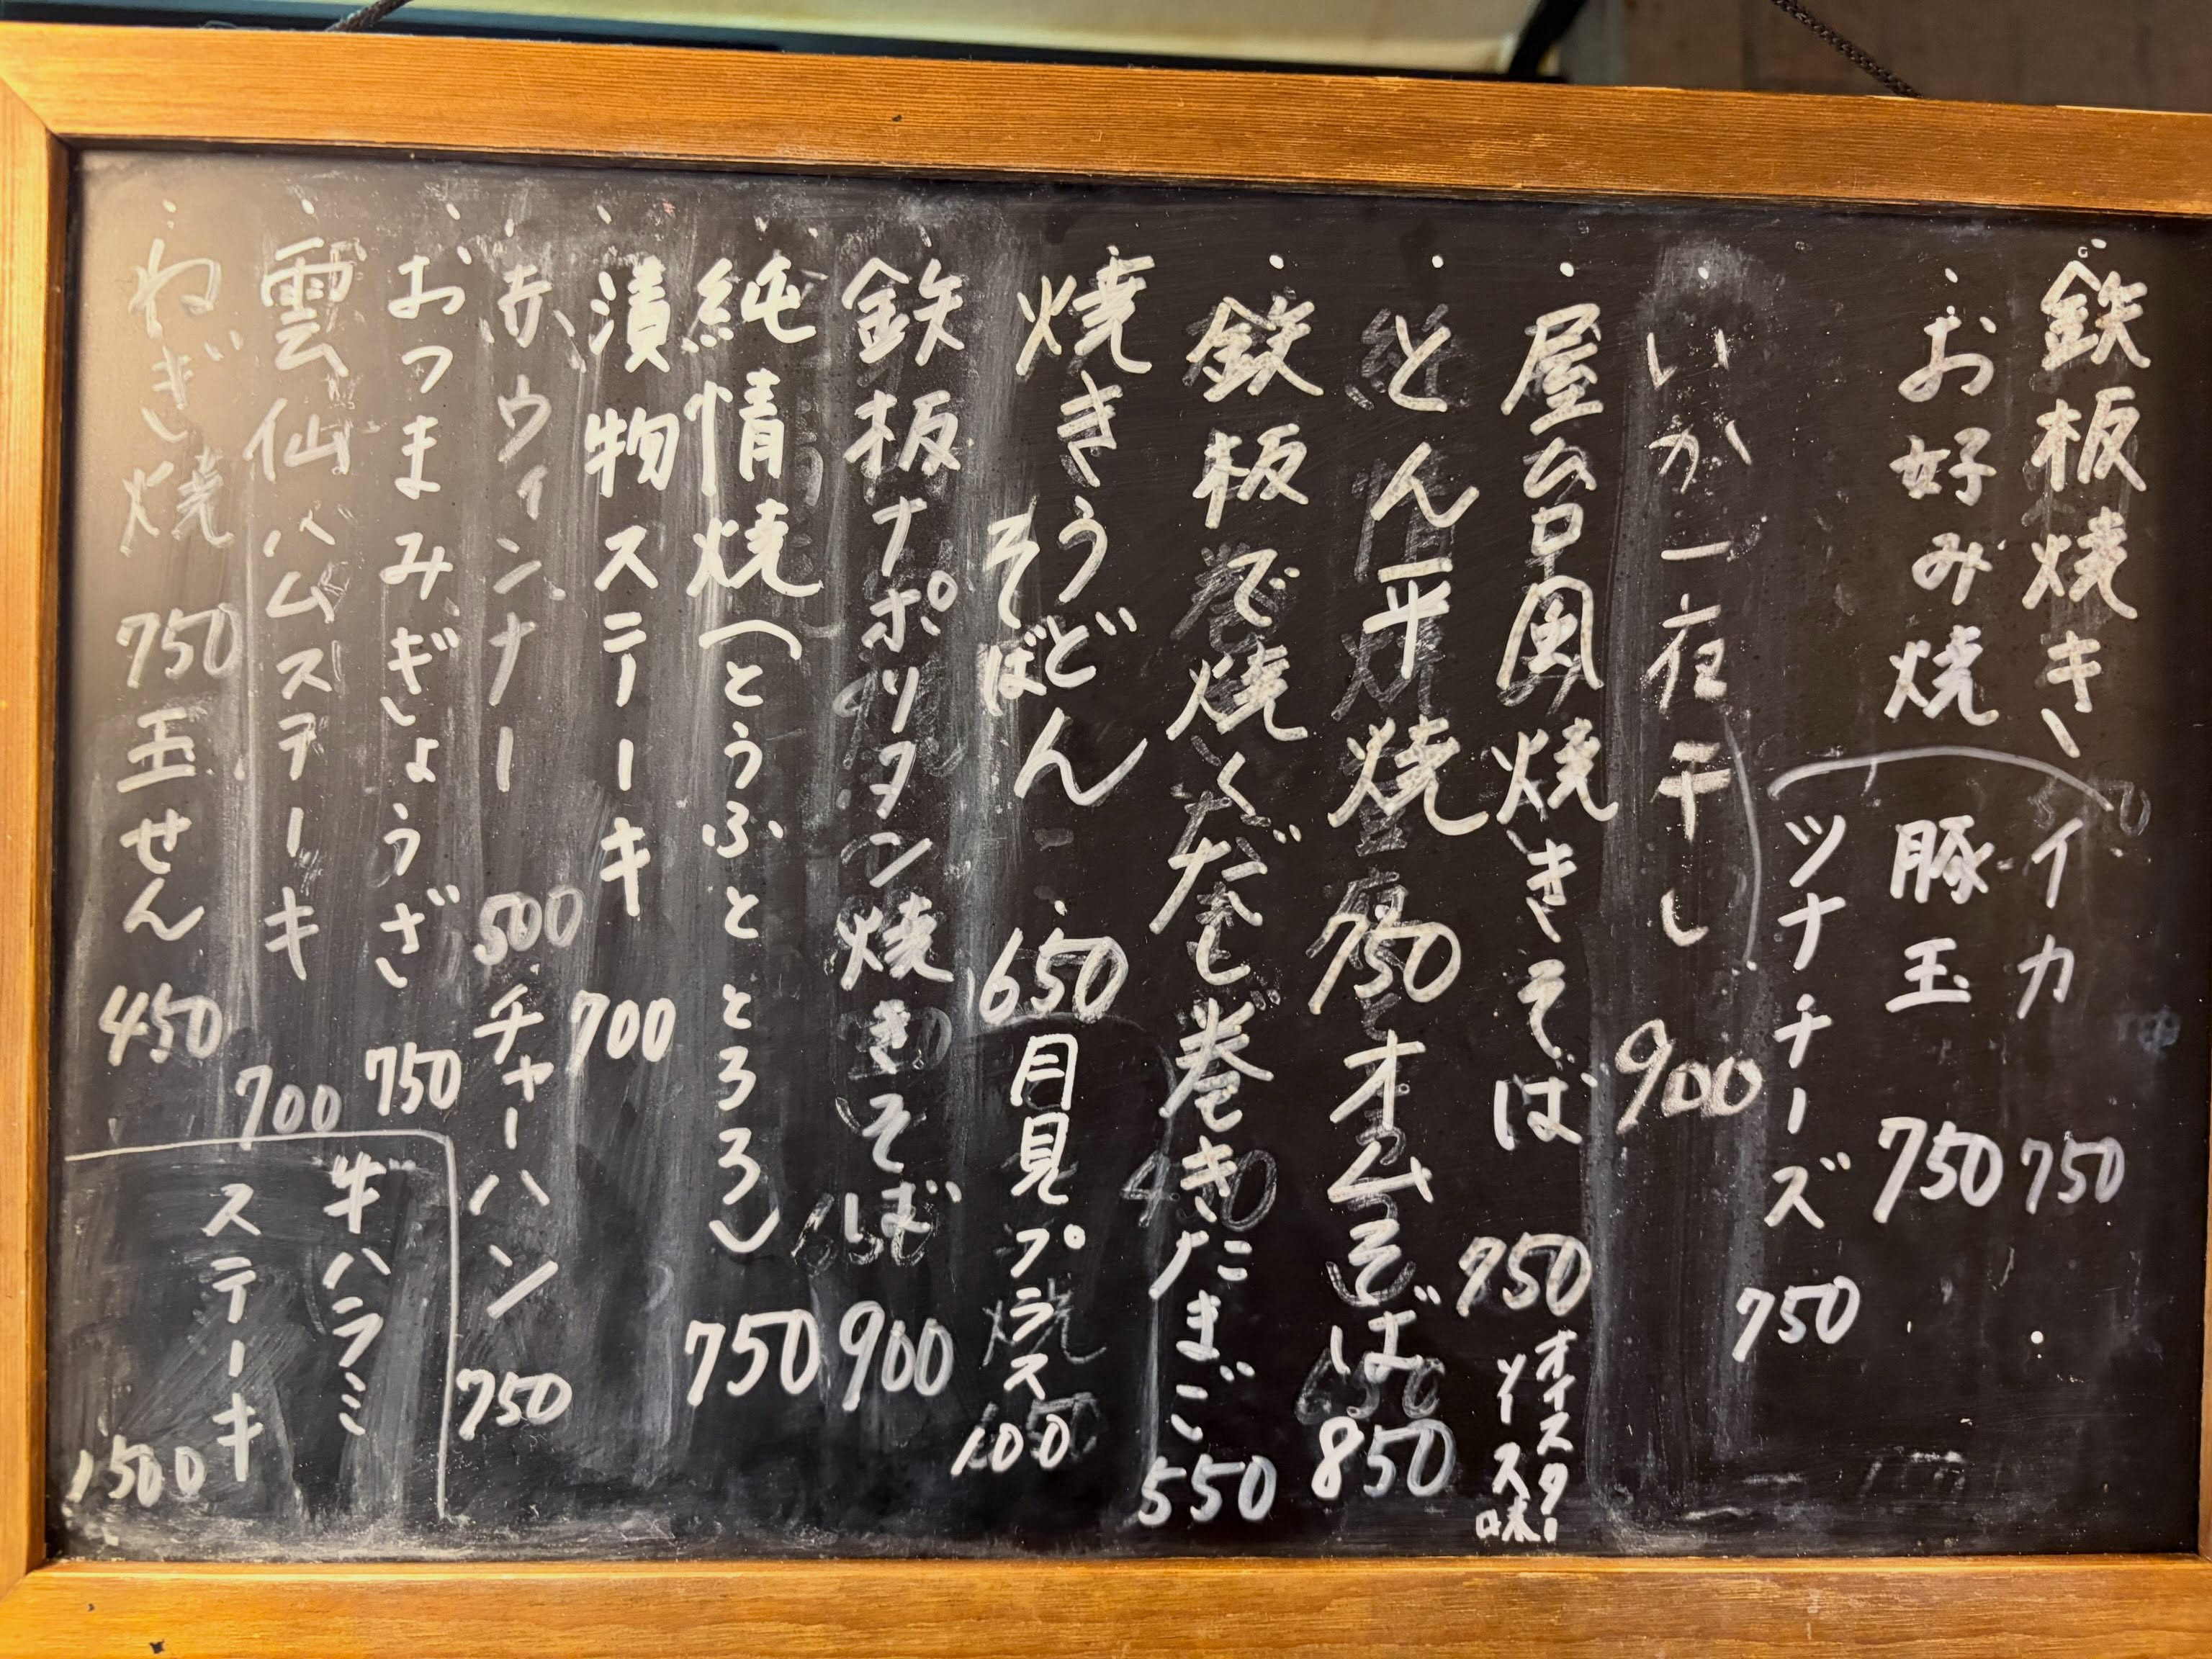 鉄板焼き
お好み焼
イカ 750
豚玉 750
ツナチーズ 750
いか一夜干し 900
屋台風焼きそば 750 オイスターソース味
とん平焼 750 オムそば 850
鉄板で焼くだし巻きたまご 550
焼きうどん
そば
650 月見プラス100
鉄板ナポリタン焼きそば 900
純情焼(とうふととろろ) 750
漬物ステーキ 700
赤ウィンナー 500 チャーハン 750
おつまみぎょうざ 750
雲仙ハムステーキ 700
ねぎ焼 750 玉せん 450
牛ハラミ
ステーキ 1500